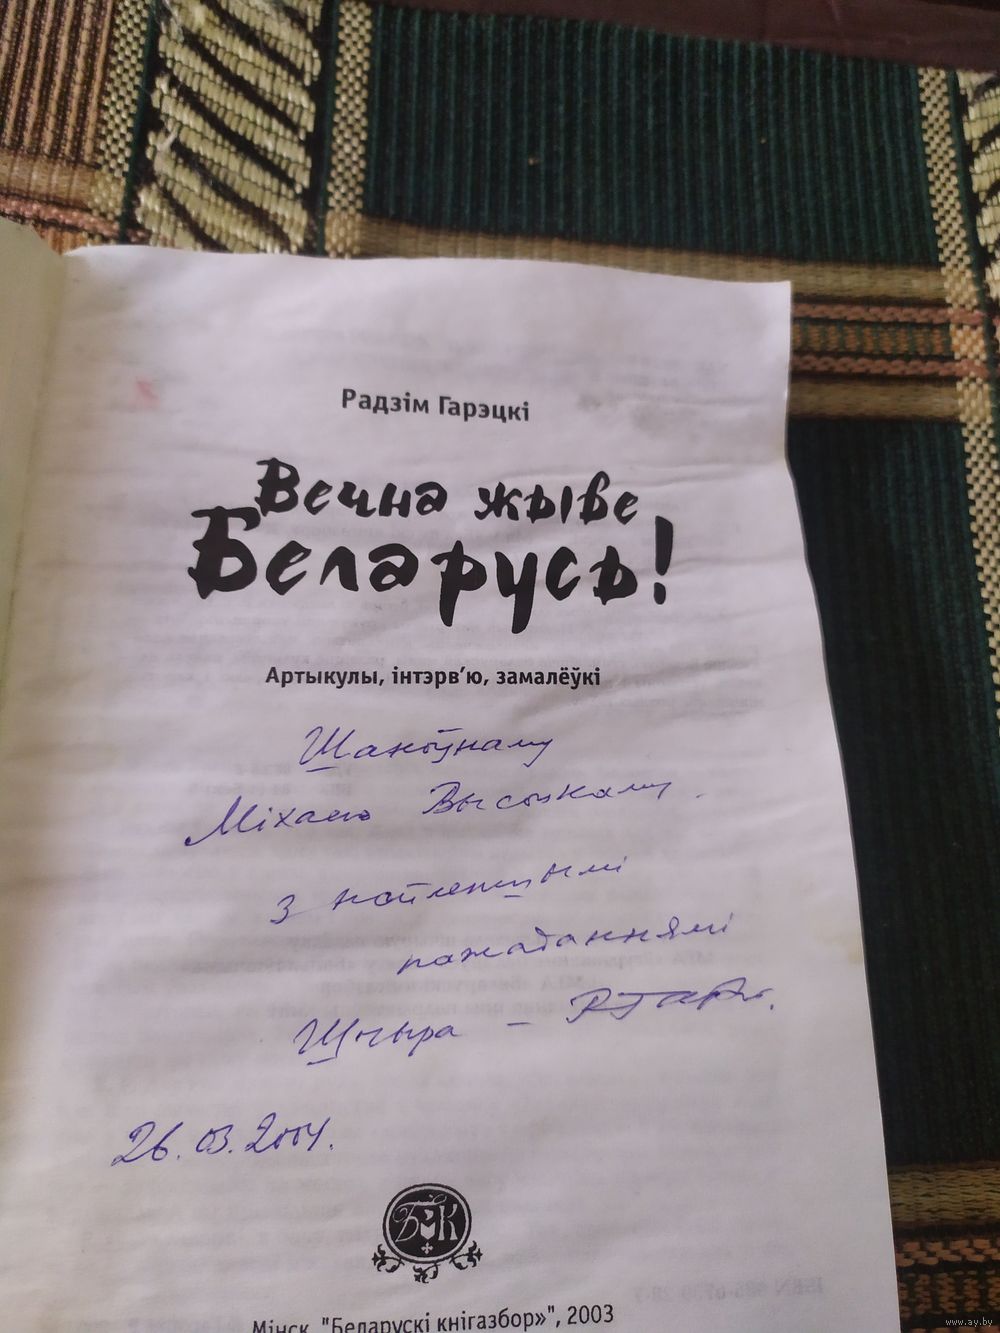 Радзім Гарэцкі
Вечна жыве
Беларусь!
Артыкулы, інтэрв'ю, замалёўкі
Шаноўнаму
Міхасю Высоцкаму
з найлепшымі
пажаданнямі
Шчыра –
26.03.2004.
БК
Мінск, "Беларускі кнігазбор»", 2003
www.ay.by